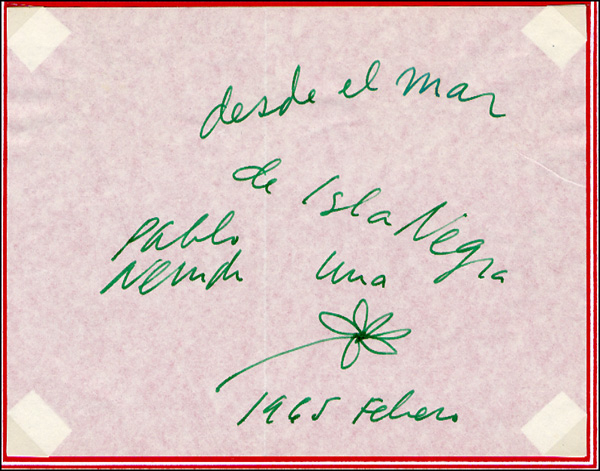 desde el mar
de Isla Negra
una
Pablo
Neruda
1965 Febrero